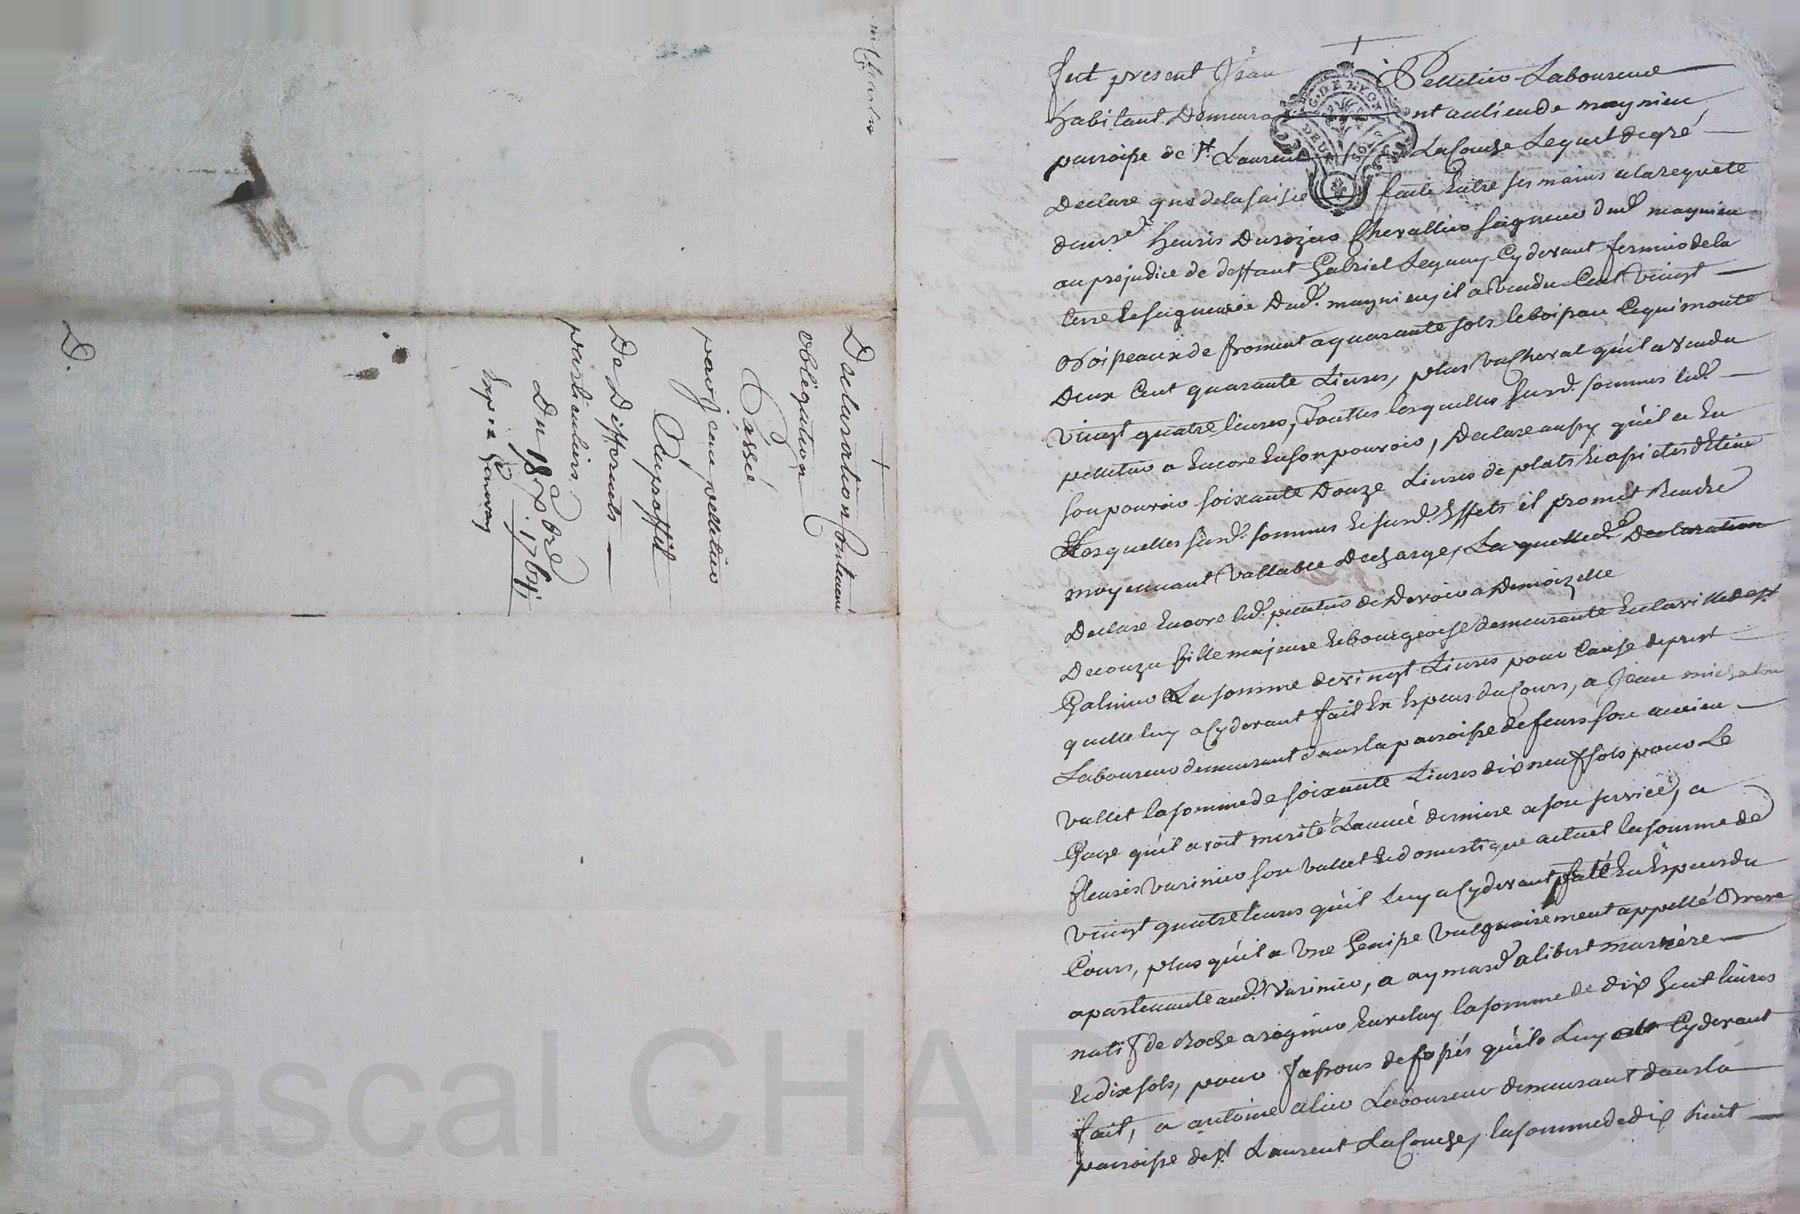 Declaration Contenant
obligation
Passée
par jean pelletier
Auproffit
De Differents
particuliers,
Du 18e 8bre
1767
fut present Jean Pelletier Laboureur
habitant Demeurant au lieu de magnieu
parroisse de St. Laurent La Conche Lequel de gré
Declare que de la saisie faite Entre ses mains a la requete
de mre. henris Durozier Chevallier seigneur dud. magnieu
au prejudice de deffunt Gabriel Leguay Cy devant fermier de la
terre Et seigneurie Dud. magnieu, il a Vendu Cent vingt
Boisseaux de froment a quarante sols le boisseau Ce qui monte
Deux Cent quarante Livres, plus un Cheval qu'il a vendu
vingt quatre livres, Touttes lesquelles susd. sommes led.
pelletier a Encore En son pouvoir, Declare aussy qu'il a En
son pouvoir soixante Douze Livres de plats Et assiettes d'Etain
Lesquelles susd. sommes Et susd. Effets il promet Rendre
moyennant vallable Decharge, La quelle de. Declaration
Declare Encore led. pelletier de Devoir a Demoizelle
fille majeure Et bourgeoise demeurante En la ville de st
Galmier La somme de vingt Livres pour Cause de prest
quelle luy a Cy devant fait En Especes du Cours, a Jean michalon
Laboureur demeurant dans la parroisse de feurs son ancien
vallet la somme de soixante Livres dix neuf sols pour Le
Gage qu'il avoit merité L'année derniere a son service, a
fleuris Varinier son vallet Et domestique actuel la somme de
vingt quatre livres qu'il Luy a Cy devant fait En Especes du
Cours, plus qu'il a Une Genisse vulgairement appellé Brave
apartenante aud. Varinier, a aymard alibert
natif de Roche a regnier En velay la somme de dix huit livres
Et dix sols, pour façons de fossés qu'il Luy a Cy devant
fait, a antoine Laboureur demeurant dans la
parroisse de st Laurent La Conche, la somme de dix huit
G. DE LYON
DEUX SOLS
Pascal CHAPEYRON